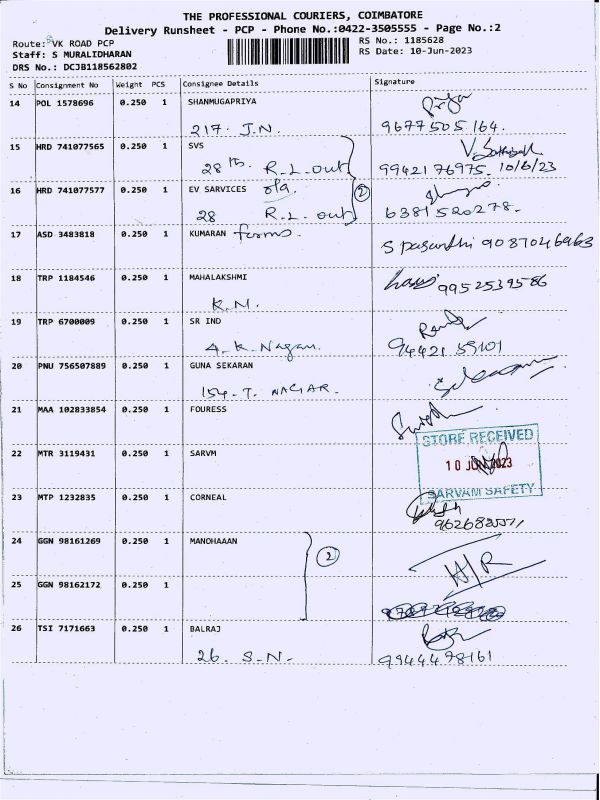 THE PROFESSIONAL COURIERS, COIMBATORE
Delivery Runsheet - PCP - Phone No.:0422-3505555 - Page No.:2
Route: VK ROAD PCP
RS No.: 1185628
Staff: S MURALIDHARAN
RS Date: 10-Jun-2023
DRS No.: DCJB118562802
S No Consignment No Weight PCS Consignee Details Signature
14 POL 1578696 0.250 1 SHANMUGAPRIYA
217. J.N. 9677505164.
15 HRD 741077565 0.250 1 SVS
28th R.L-out 9942176975. 10/6/23
16 HRD 741077577 0.250 1 EV SARVICES
28 R.L-out 2 6381520278-
17 ASD 3483818 0.250 1 KUMARAN farms.
18 TRP 1184546 0.250 1 MAHALAKSHMI
K.N. 9952539586
19 TRP 6700009 0.250 1 SR IND
A.K.Nagar. 9442159101
20 PNU 756507889 0.250 1 GUNA SEKARAN
154-T. NAGAR.
21 MAA 102833854 0.250 1 FOURESS
STORE RECEIVED
22 MTR 3119431 0.250 1 SARVM
10 JUN 2023
SARVAM SAFETY
23 MTP 1232835 0.250 1 CORNEAL
24 GGN 98161269 0.250 1 MANOHAAAN 2
H/R
25 GGN 98162172 0.250 1
26 TSI 7171663 0.250 1 BALRAJ
26. S.N- 9944478161